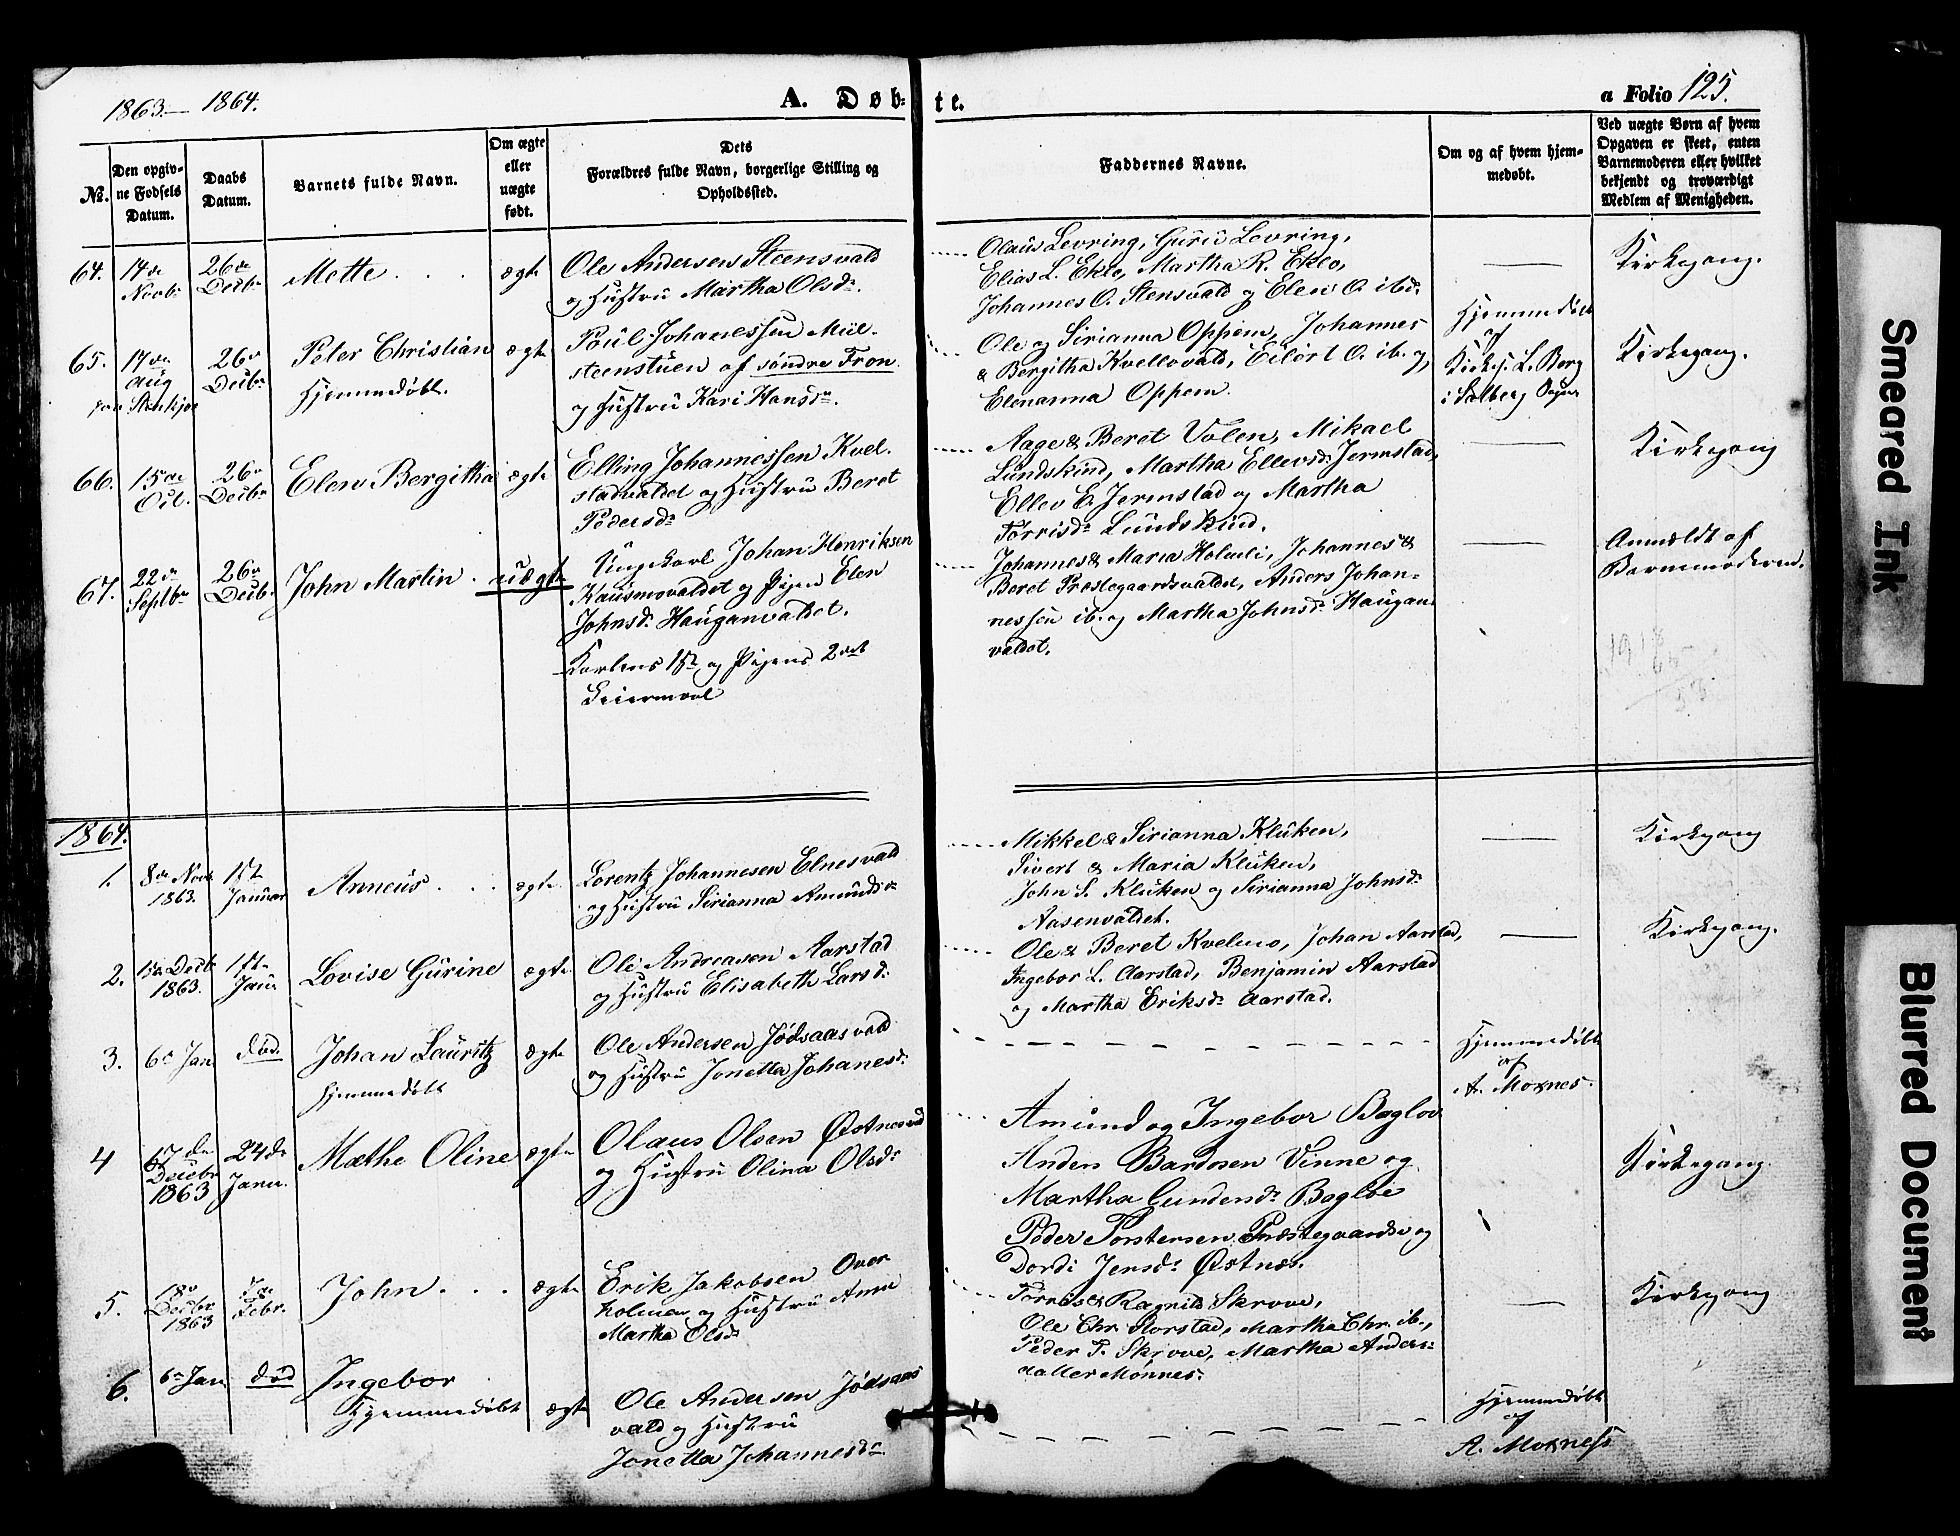 1863 – 1864.
A. Døb-
te.
a Folio 125.
No.
Den opgiv-
ne Fødsels
Datum.
Daabs
Datum.
Barnets fulde Navn.
Om ægte
eller
uægte
født.
Dets
Forældres fulde Navn, borgerlige Stilling og
Opholdssted.
Faddernes Navne.
Om og af hvem hjem-
medøbt.
Ved uægte Børn af hvem
Opgaven er skeet, enten
Barnemoderen eller hvilket
bekjendt og troværdigt
Medlem af Menigheden.
64. 14de
Novbr
26de
Decbr
Mette
ægte
Ole Andersen Steensvald
og Hustru Martha Olsdr.
Olaus Levring, Guru Levring,
Elias L. Eklo, Martha R. Eklo,
Johannes O. Stensvald og Elen O. ibd.
Kirkegang.
65. 17de
aug
paa Stenkjær
26de
Decbr
Peter Christian
Hjemmedøbt.
ægte
Poul Johanessen Mül-
steenstuen af søndre Fron
og Hustru Kari Hansdr
Ole og Sirianna Oppem, Johannes
& Bergitha Kvellovald, Eilert O. ib. og
Elenanna Oppem.
Hjemmedøbt
af
Kirkes. L. Berg
i Salberg Sogn
Kirkegang.
66. 15de
Oct.
26de
Decbr
Elen Bergitha
ægte
Elling Johannessen Kvel-
stadvaldet og Hustru Beret
Pedersdr
Aage & Beret Volen, Mikael
Lundskind, Martha Ellevsdr Jermstad,
Ellev E. Jermstad og Martha
Torrisdr Lundskind.
Kirkegang
67. 22de
Septbr
26de
Decbr.
John Martin
uægte
Ungkarl Johan Henriksen
Kausmovaldet og Pigen Elen
Johnsdr Hauganvaldet.
Karlens 1ste og Pigens 2det
Leiermaal
Johannes & Maria Holmli, Johannes &
Beret Præstegaardsvaldet, Anders Johan-
nessen ib. og Martha Johnsdr Haugan-
valdet.
Anmeldt af
Barnemoderen.
1864.
1. 8de Novbr
1863.
1ste
Januar
Anneus
ægte
Lorentz Johannesen Elnesvald
og Hustru Sirianna Amundsdr
Mikkel & Sirianna Kluken,
Sivert & Maria Kluken,
John S. Kluken og Sirianna Johnsdr
Aasenvaldet.
Kirkegang
2. Decbr
1863.
1ste
Jan.
Lovise Gurine
ægte
Ole Andreasen Aarstad
og Hustru Elisabeth Larsdr
Ole & Beret Kvelmo, Johan Aarstad,
Ingebor L. Aarstad, Benjamin Aarstad
og Martha Eriksdr Aarstad.
Kirkegang.
3. 6te Jan.
død.
Johan Lauritz
Hjemmedøbt
ægte
Ole Andersen Jødsaasvald
og Hustru Jonetta Johanesdr
Hjemmedøbt
af
A. Moxnes.
4 17de
Decbr
1863
24de
Janu.
Mæthe Oline
ægte
Olaus Olsen Østnesvald
og Hustru Olina Olsdr
Amund og Ingebor Bagloe
Anders Bardosen Vinne og
Martha Bagloe
Peder Torstensen Præstegaards og
Dordi Jensdr Østnes.
Kirkegang.
5. 18de
Decbr
1863
Febr.
John
ægte
Erik Jakobsen Over
holmen og Hustru Anne
Martha Olsdr
Torris & Ragnild Skrove,
Ole Chr. Storstad, Martha Chr. ib.,
Peder T. Skrove, Martha Anders-
datter Monnes.
Kirkegang
6. 6te Jan.
død
Ingebor
Hjemmedøbt
ægte
Ole Andersen Jødsaas
vald og Hustru
Jonetta Johannesdr
Hjemmedøbt
af
A. Moxness
Smeared Ink
Blurred Document